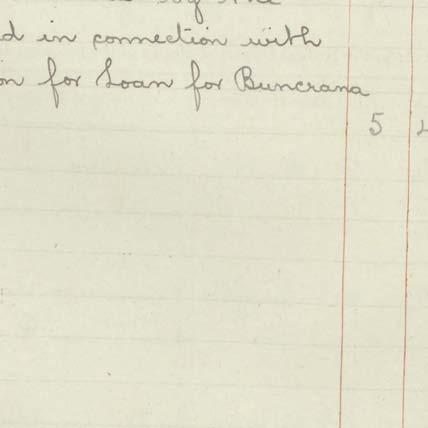 by the
d in connection with
on for Loan for Buncrana
5